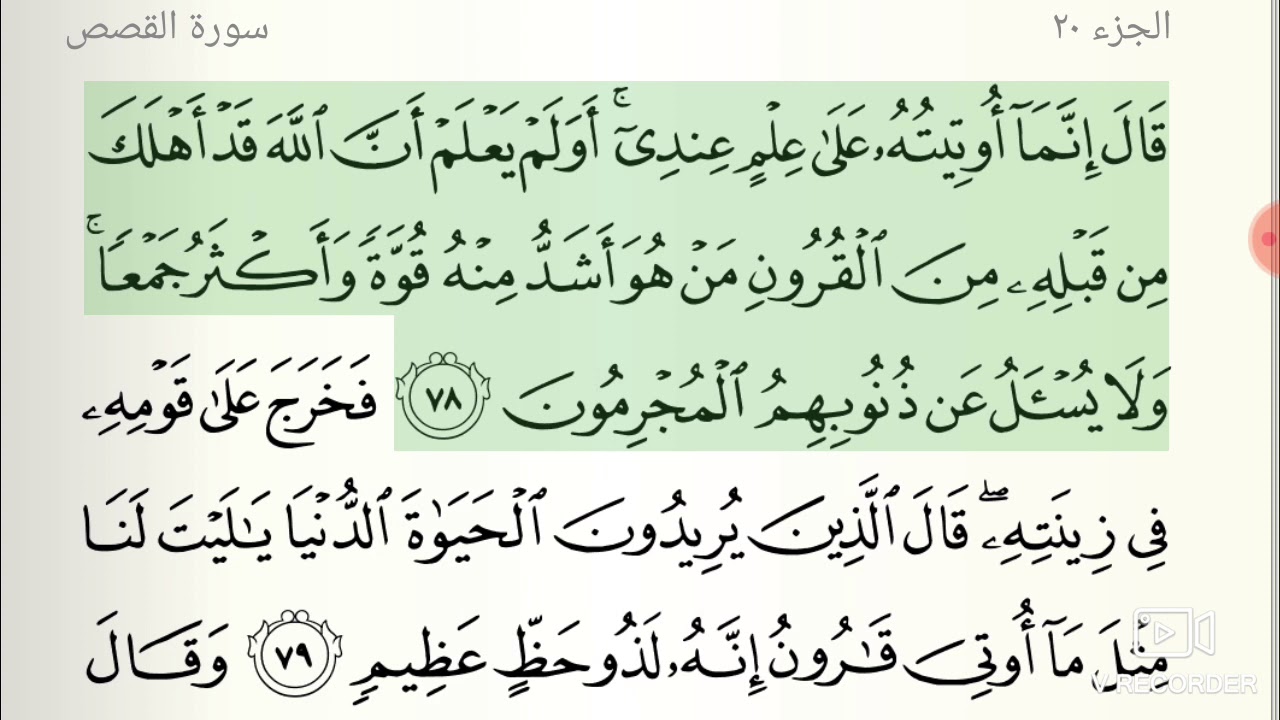 الجزء ٢٠
سورة القصص
قَالَ إِنَّمَآ أُوتِيتُهُۥ عَلَىٰ عِلْمٍ عِندِىٓ ۚ أَوَلَمْ يَعْلَمْ أَنَّ ٱللَّهَ قَدْ أَهْلَكَ
مِن قَبْلِهِۦ مِنَ ٱلْقُرُونِ مَنْ هُوَ أَشَدُّ مِنْهُ قُوَّةً وَأَكْثَرُ جَمْعًا ۚ
وَلَا يُسْـَٔلُ عَن ذُنُوبِهِمُ ٱلْمُجْرِمُونَ ٧٨ فَخَرَجَ عَلَىٰ قَوْمِهِۦ
فِى زِينَتِهِۦ ۖ قَالَ ٱلَّذِينَ يُرِيدُونَ ٱلْحَيَوٰةَ ٱلدُّنْيَا يَـٰلَيْتَ لَنَا
مِثْلَ مَآ أُوتِىَ قَـٰرُونُ إِنَّهُۥ لَذُو حَظٍّ عَظِيمٍ ٧٩ وَقَالَ
V RECORDER